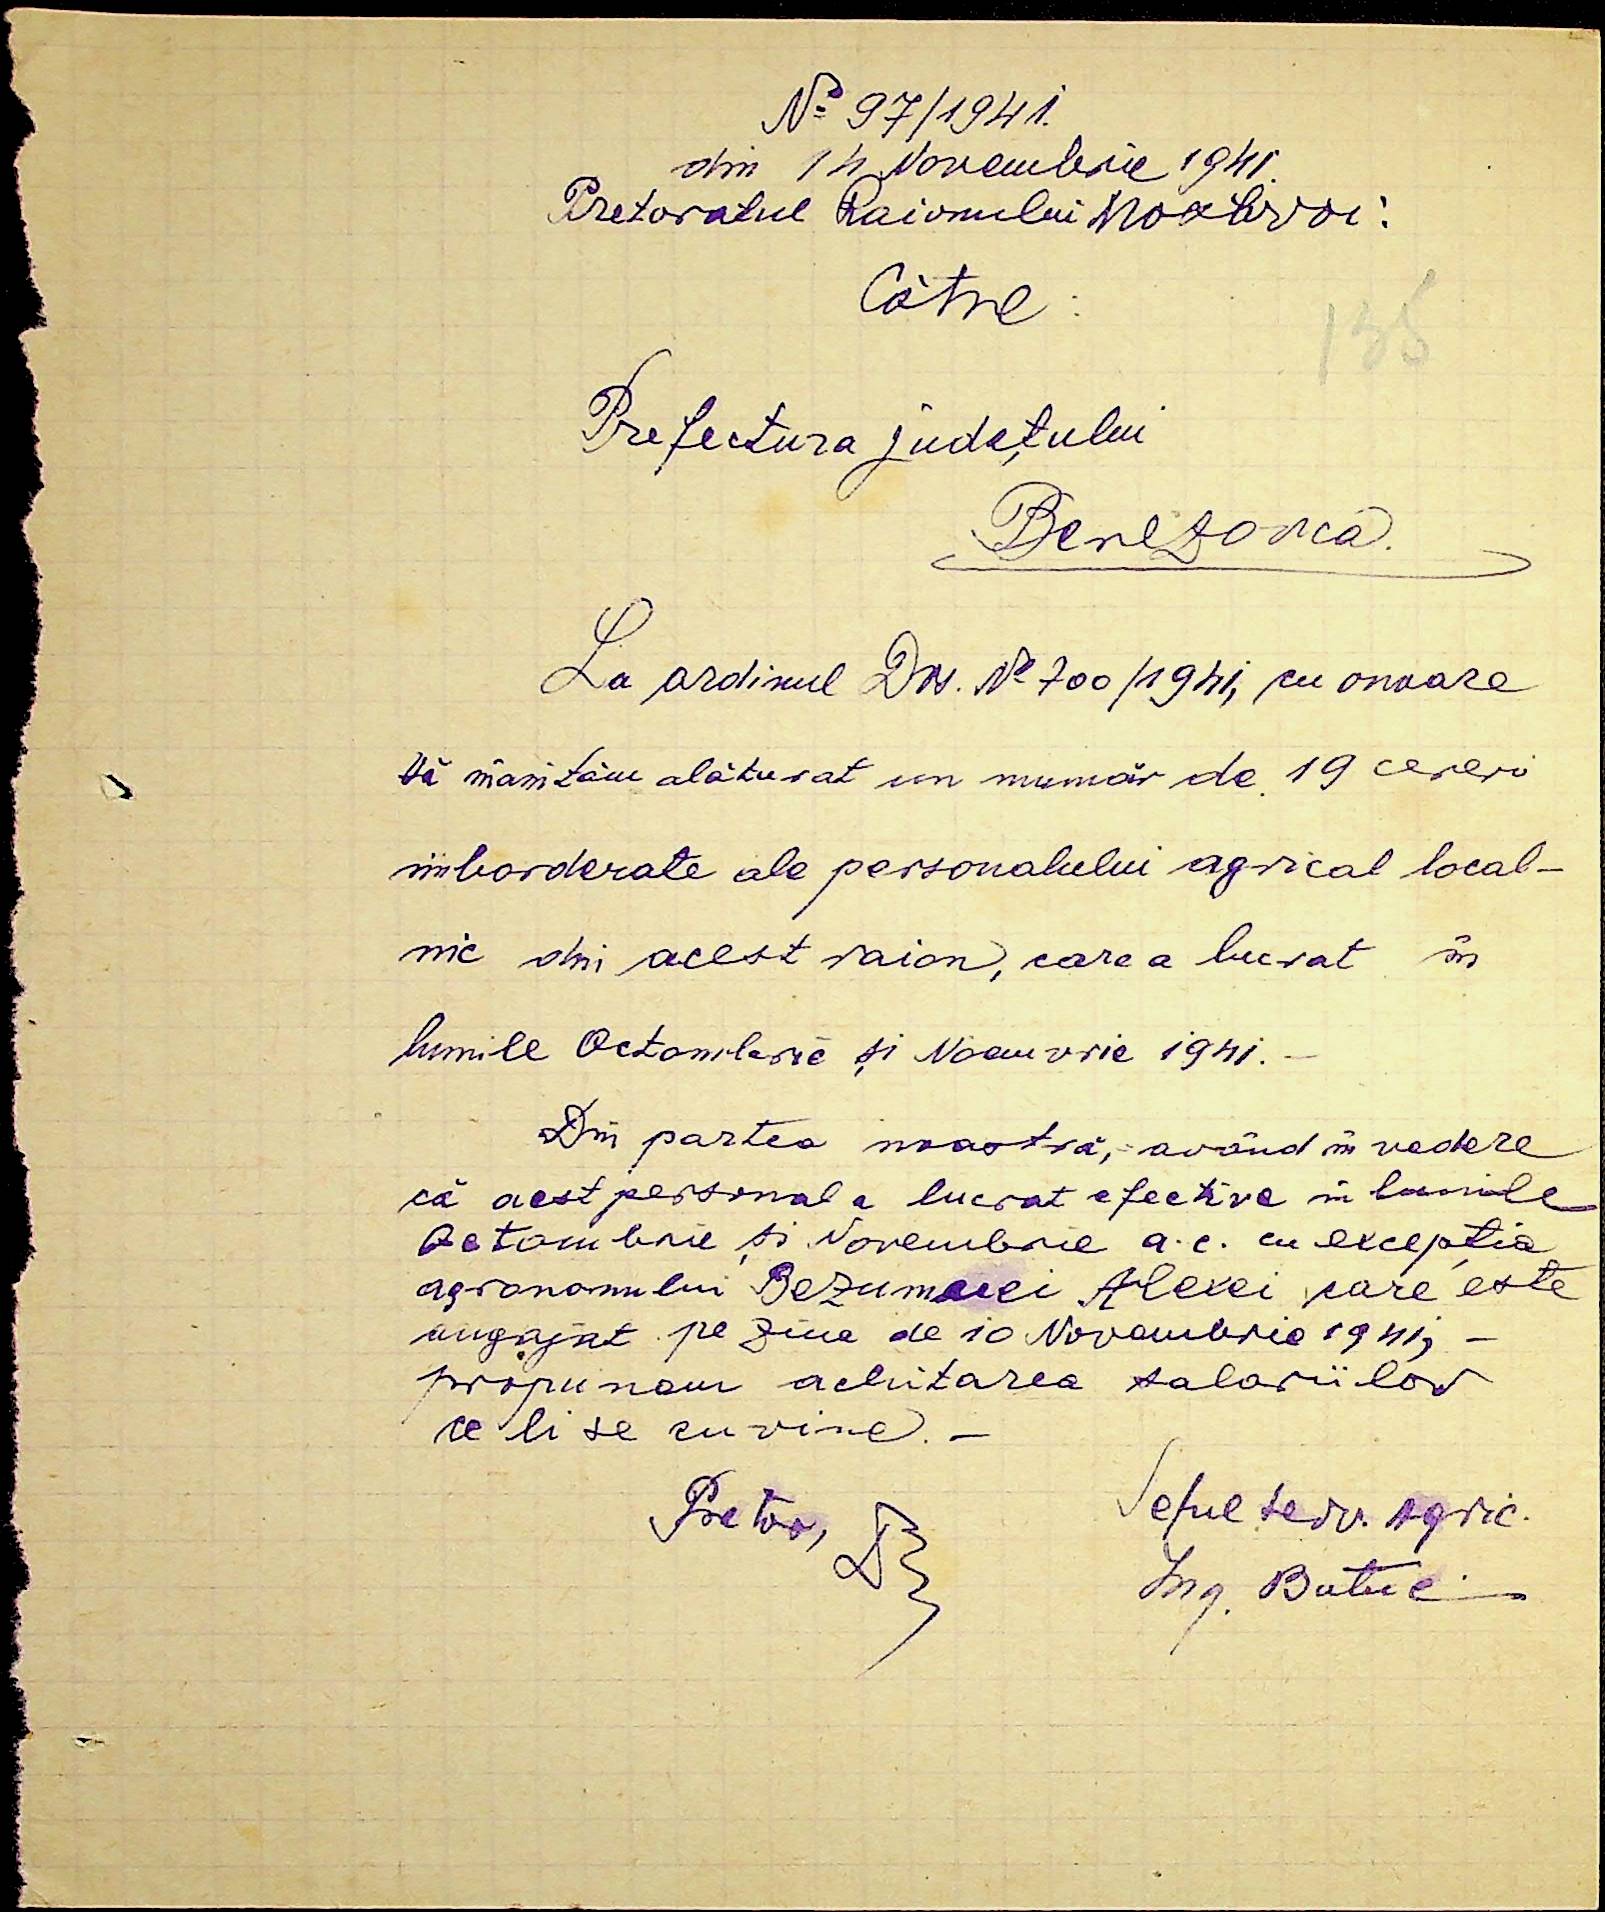 Nº 97/1941.
din 14 Novembrie 1941.
Pretoratul Raionului Mostovoi:
Către:
135
Prefectura județului
Berezovca.
La ordinul Dvs. Nº 700/1941, cu onoare
Vă înaintăm alăturat un număr de 19 cereri
îmborderate ale personalului agricol local-
nic din acest raion, care a lucrat în
lunile Octombrie și Noemvrie 1941. -
Din partea noastră, - având în vedere
că acest personal a lucrat efective în lunile
Octombrie și Novembrie a.c. cu excepția
agronomului Alexei care este
angajat pe ziua de 10 Novembrie 1941, -
propunem achitarea salariilor
ce li se cuvine. -
Pretor,
Șeful serv. Agric.
Ing. Butuc